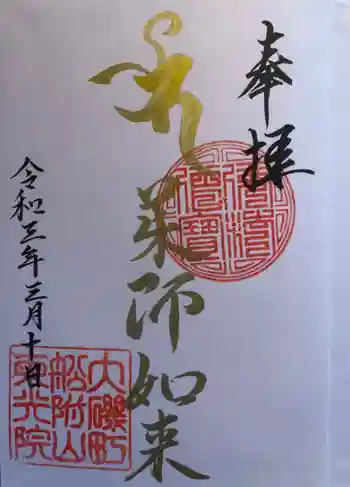 奉拝
薬師如来
令和三年三月十日
大磯町
船附山
東光院